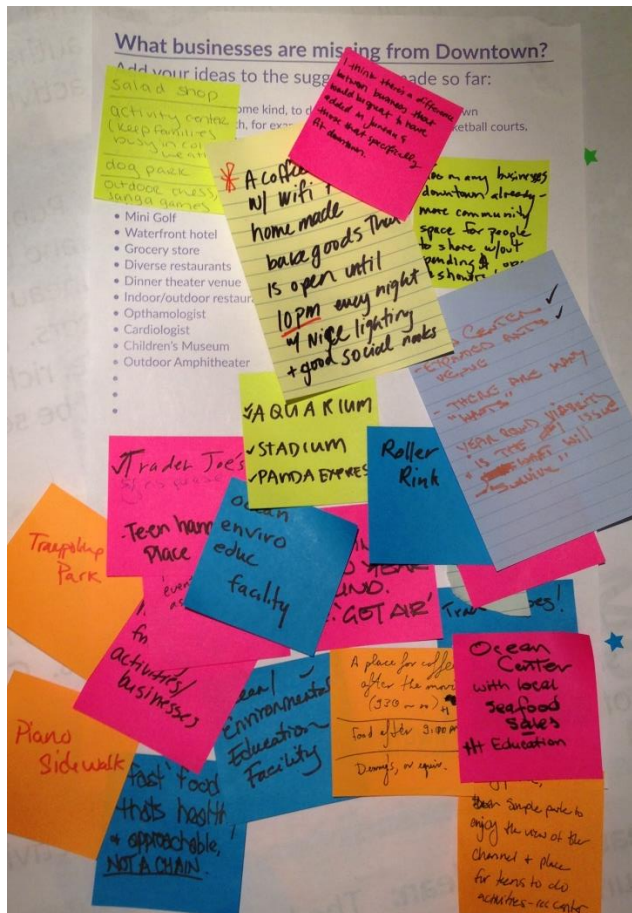 What businesses are missing from Downtown?
Add your ideas to the sugg made so far:
ome kind, to d
wn
th, for exa
ketball courts.
• Mini Golf
• Waterfront hotel
• Grocery store
• Diverse restaurants
• Dinner theater venue
• Indoor/outdoor restaur
• Opthamologist
• Cardiologist
• Children's Museum
• Outdoor Amphitheater
•
•
•
salad shop
activity center
(keep families
busy in col
dog park
outdoor chess,
janga games
I think there's a difference
between businesses that
would be great to have
added in Juneau &
those that specifically
fit downtown.
A coffe
w/ wifi +
homemade
bake goods that
is open until
10pm every night
w/ nice lighting
+ good social nooks
too many businesses
downtown already-
more community
space for people
to share w/out
spending $
CENTER ✓
VENUE
- THERE ARE MANY
"WANTS"
YEAR ROUND VIABILITY
IS THE ISSUE
WILL
SURVIVE"
✓AQUARIUM
✓STADIUM
✓PANDA EXPRES
Roller
Rink
✓Trader Joe's
-Teen hang
Place
ocean
enviro
educ
facility
YEAR
UND.
'GOT AIR'
Trampoline
Park
activities/
businesses
Piano
Sidewalk
ocean/
environmental
Education
Facility
A place for coffee
after the movi
Food after 9:00 PM
Denny's, or equiv.
Ocean
Center
with local
seafood
sales
## Education
fast food
thats health
& approachable,
NOT A CHAIN
simple park to
enjoy the view of the
channel + place
for teens to do
activities-rec center